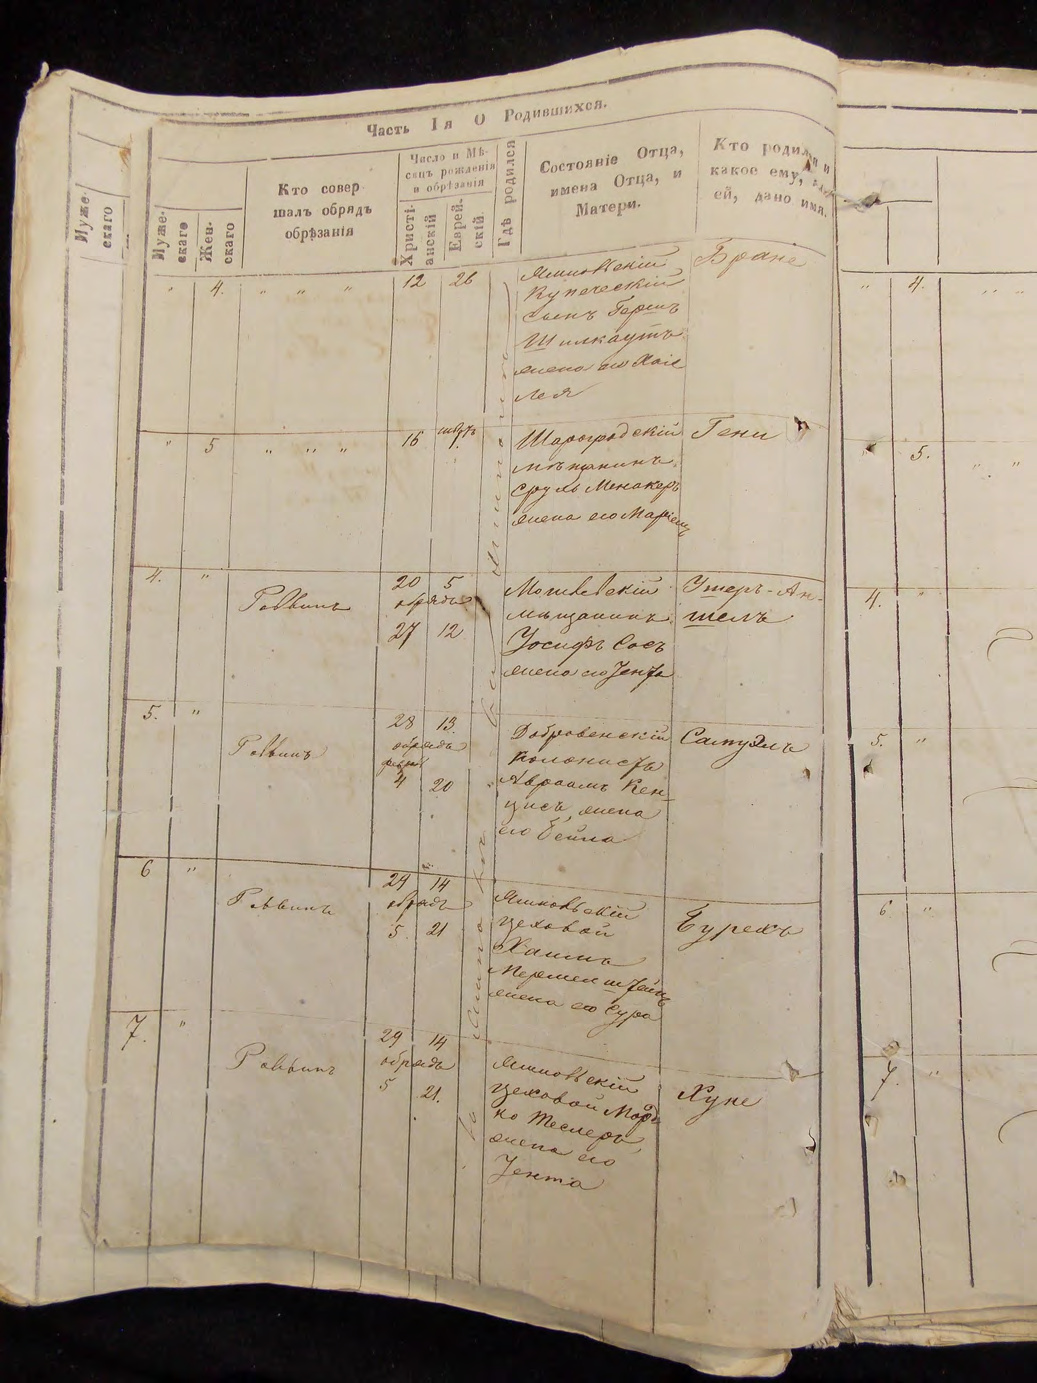 Часть Iя О Родившихся.
Муже-
скаго
Муже-
скаго
Жен-
скаго
Кто совер
шалъ обрядъ
обрѣзанія
Число и Мѣ-
сяцъ рожденія
и обрѣзанія
Христі-
анскій
Еврей-
скій.
Гдѣ родился
Состояніе Отца,
имена Отца, и
Матери.
Кто родился и
какое ему, или
ей, дано имя.
" 4. " " " 12 26
Ямповскій
Купеческій
сынъ Гершъ
Шилкаутъ
жена его Хая
Лея
Бране
" 5 " " " 16 1.
Шароградскій
мѣщанинъ
Сруль Менакеръ
жена его Маріемъ
Гени
4. "
Раввинъ
20 5
обрядъ
27 12
Могилевскій
мѣщанинъ
Іосифъ Сосъ
жена его Іента
Ушеръ-Ан-
шелъ
5. "
Раввинъ
28 13.
обрядъ
февр
4 20
Добровенскій
колонистъ
Авраамъ Кен-
цисъ, жена
его Бейла
Самуэль
6 "
Раввинъ
29 14
обрядъ
5. 21
Ямповскій
цеховой
Хаимъ
Мермельштейнъ
жена его Сура
Бурехъ
7. "
Раввинъ
29 14
обрядъ
5 21.
Ямповскій
цеховой Морд
ко Теслеръ,
жена его
Іента
Хуне
" 4. " "
" 5. " "
4. "
5. "
6 "
7. "